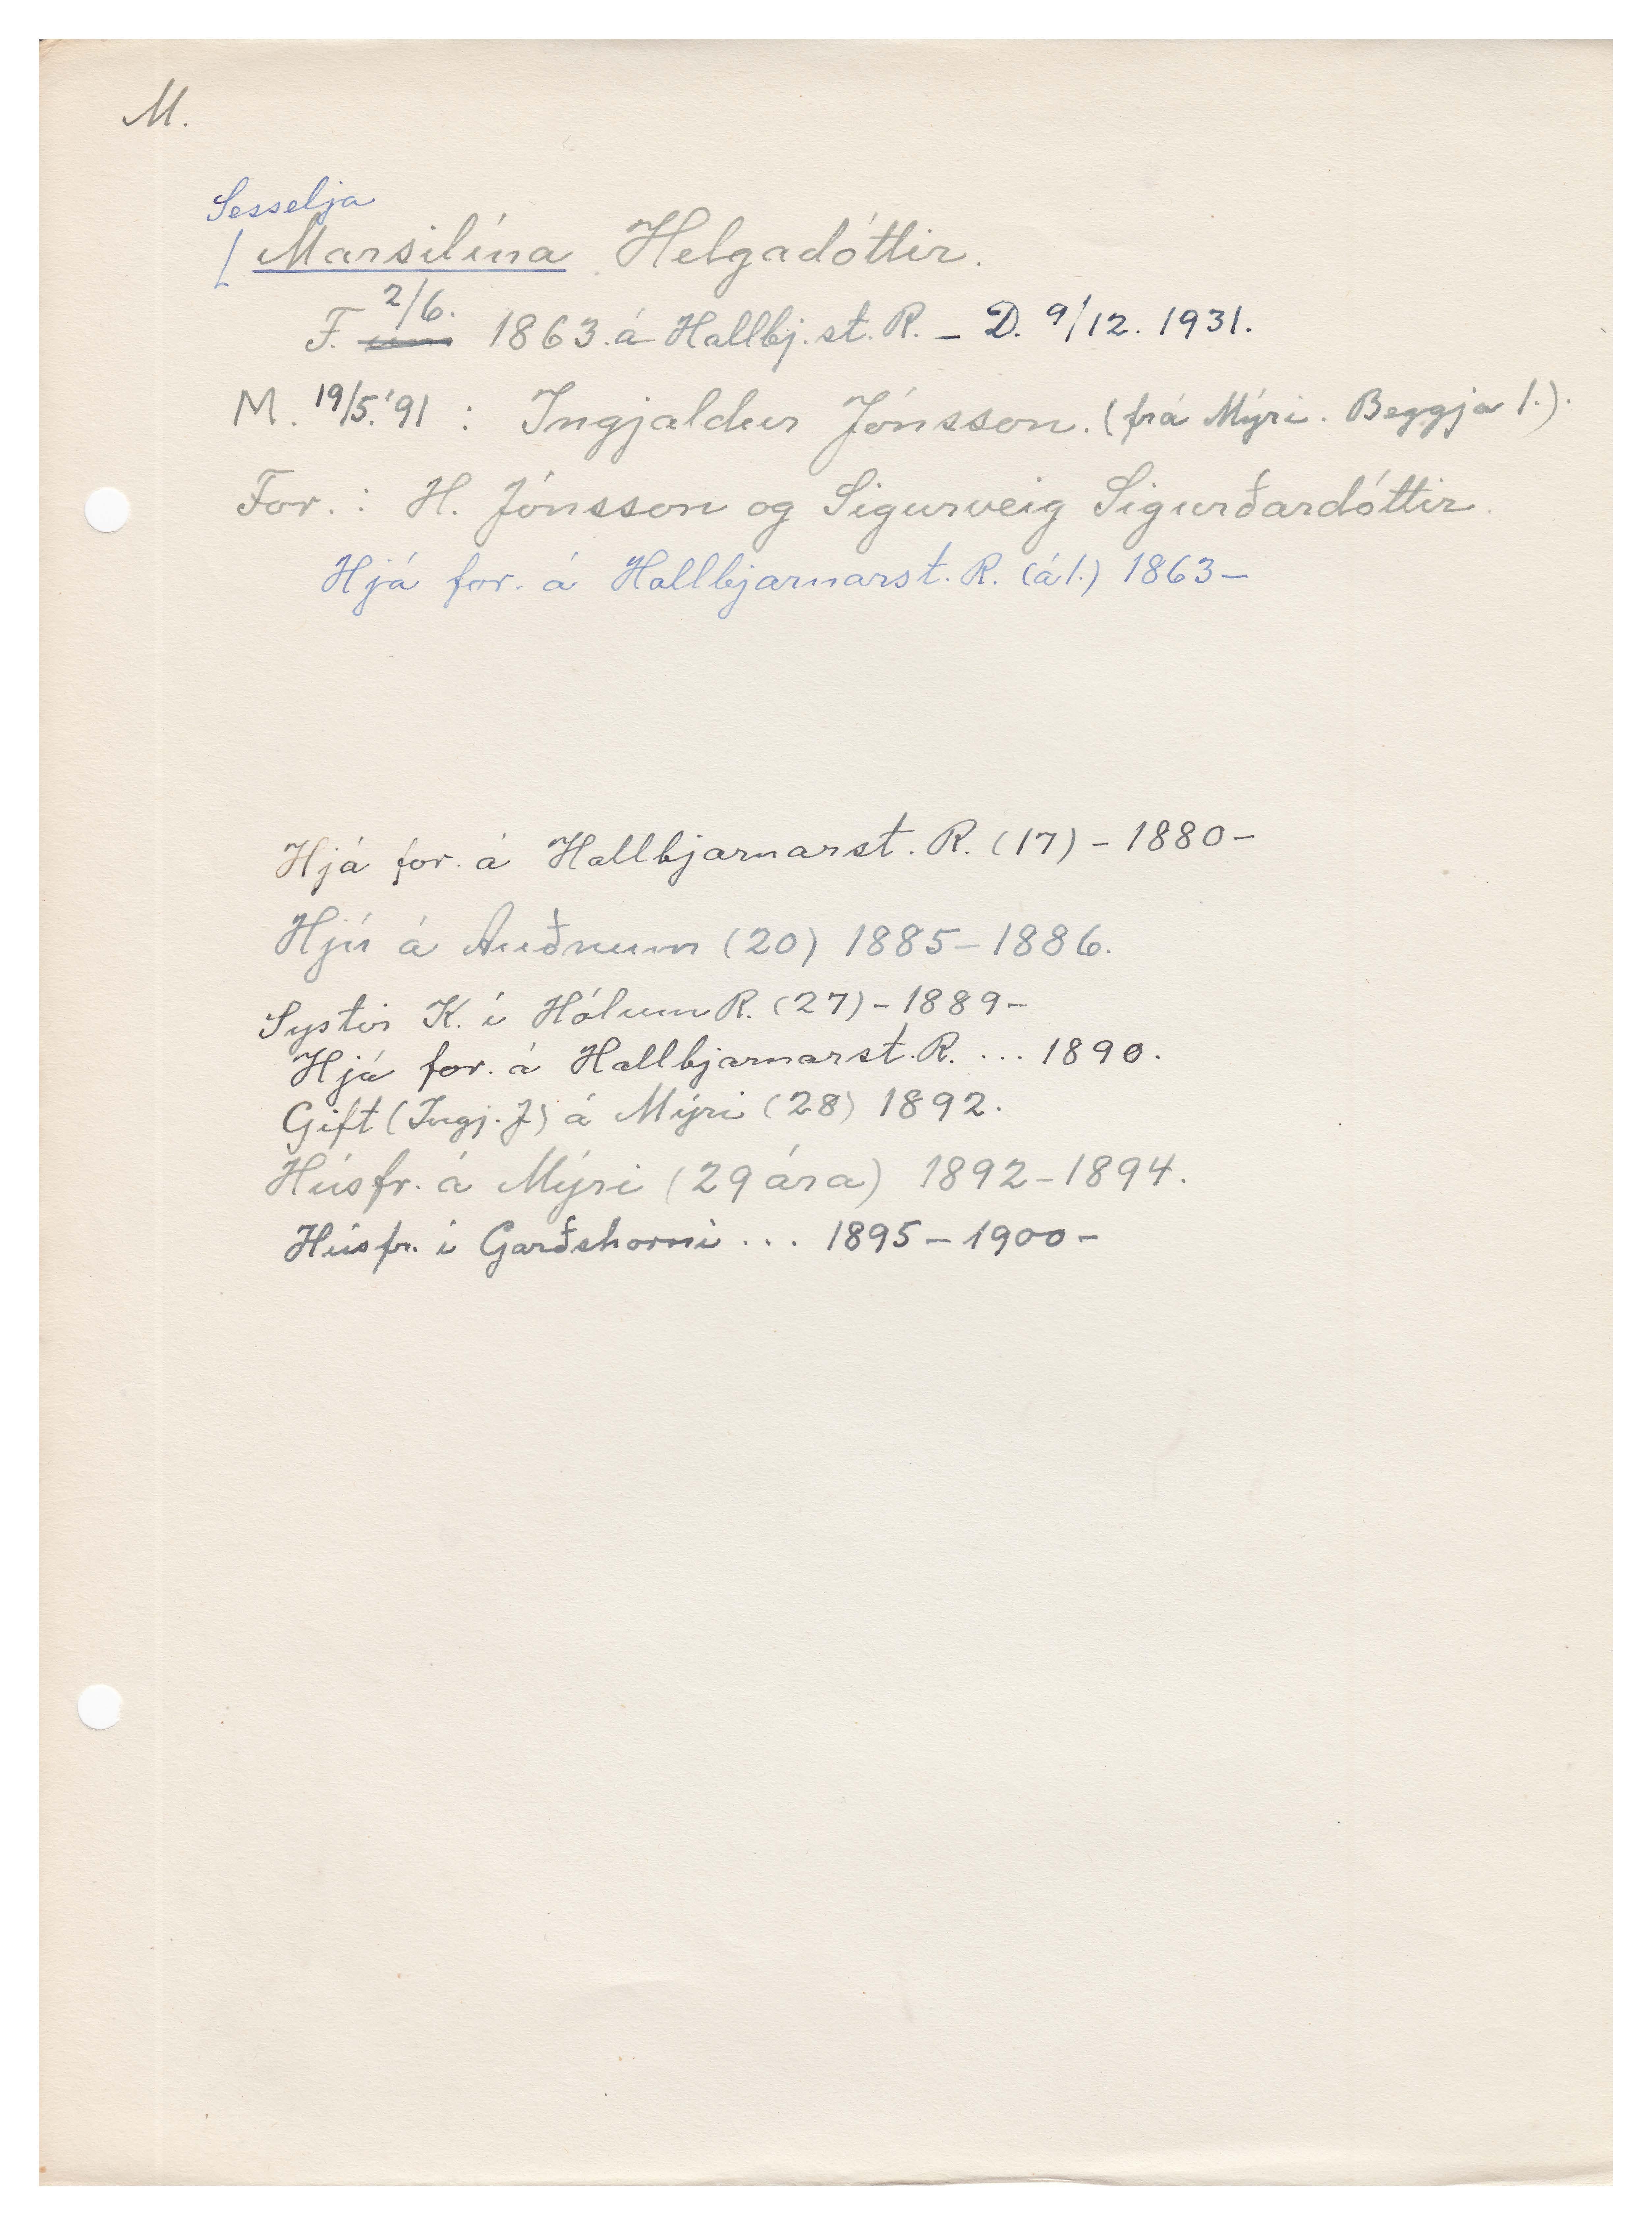 M.
Sesselja
Marsilína Helgadóttir.
2/6.
F. um 1863. á Hallbj.st. R. – D. 9/12. 1931.
M. 19/5.'91 : Ingjaldur Jónsson. (frá Mýri. Beggja 1.).
For. : H. Jónsson og Sigurveig Sigurðardóttir.
Hjá for. á Hallbjarnarst. R. (á 1.) 1863–
Hjá for. á Hallbjarnarst. R. (17) – 1880 –
Hjú á Auðnum (20) 1885 – 1886.
Systir K. í Hólum R. (27) – 1889 –
Hjá for. á Hallbjarnarst. R. ... 1890.
Gift (Ingj. J) á Mýri (28) 1892.
Húsfr. á Mýri (29 ára) 1892 – 1894.
Húsfr. í Garðshorni ... 1895 – 1900 –